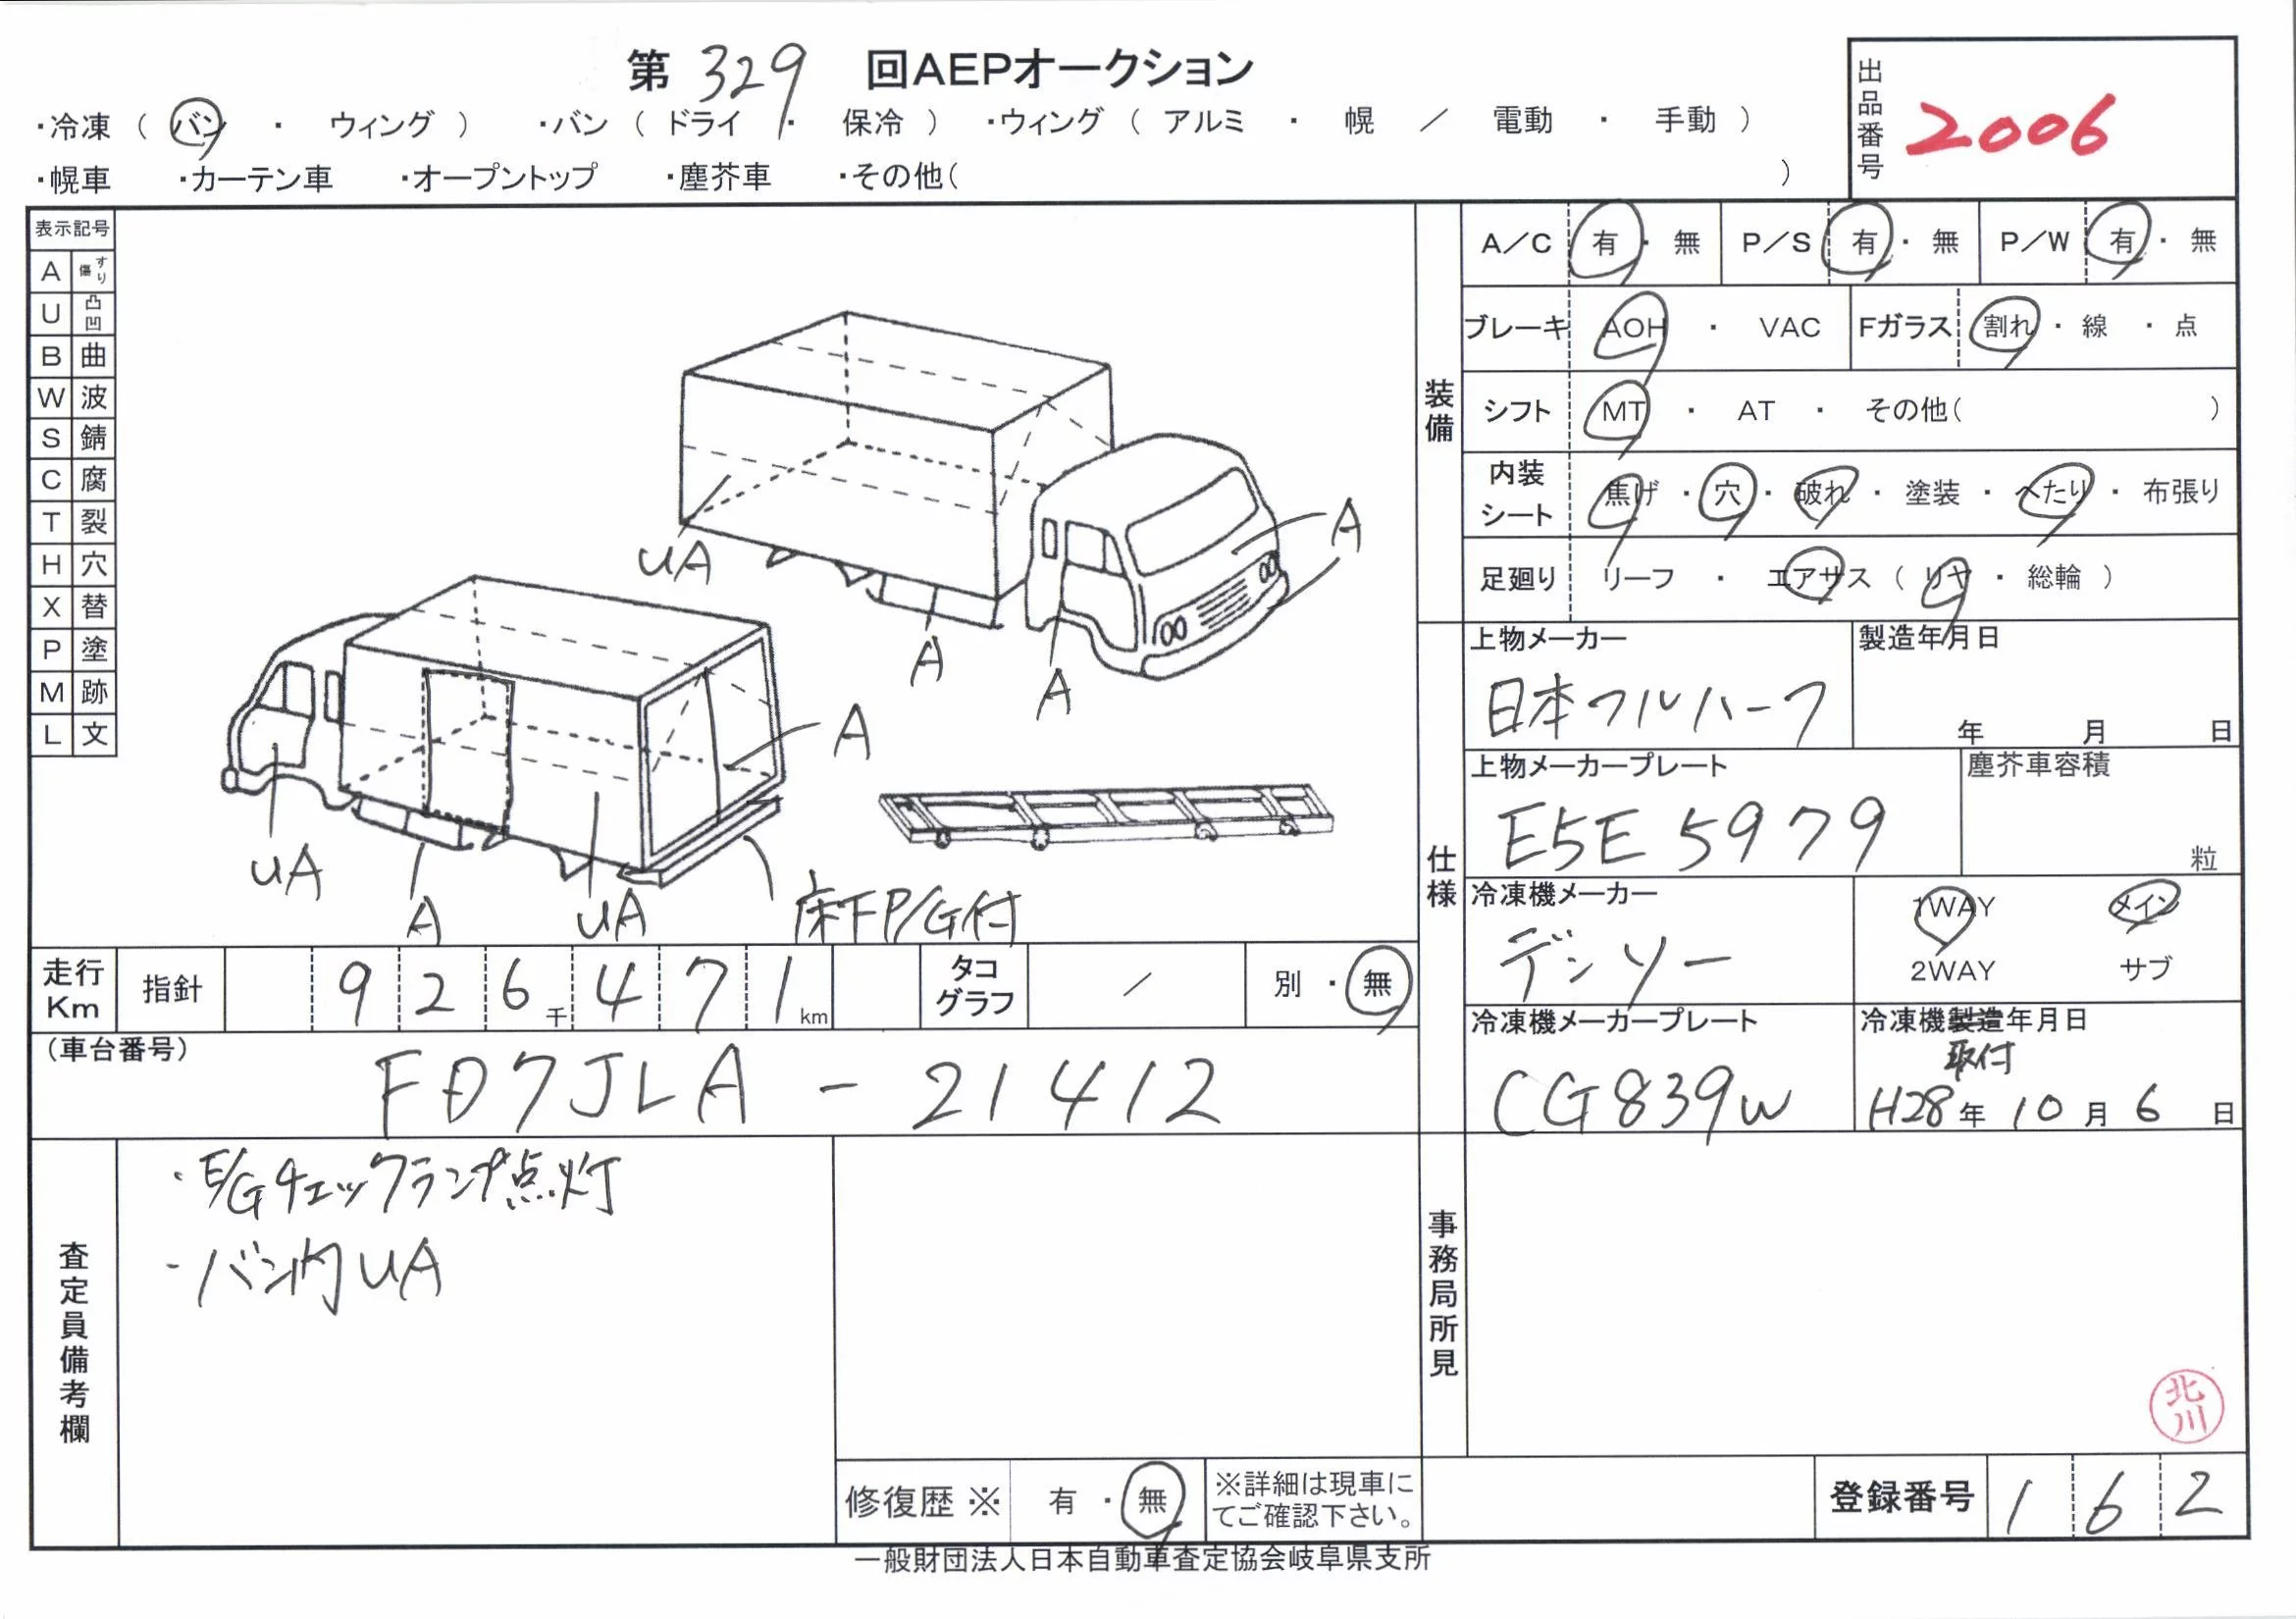 第 329 回AEPオークション
・冷凍 ( バン ・ ウィング ) ・バン ( ドライ ・ 保冷 ) ・ウィング ( アルミ ・ 幌 ／ 電動 ・ 手動 )
・幌車 ・カーテン車 ・オープントップ ・塵芥車 ・その他( )
出品番号 2006
表示記号
A すり傷
U 凸凹
B 曲
W 波
S 錆
C 腐
T 裂
H 穴
X 替
P 塗
M 跡
L 文
UA
A
A
A
A
UA
A
UA
床下P/G付
装備
A／C 有 ・ 無 P／S 有 ・ 無 P／W 有 ・ 無
ブレーキ AOH ・ VAC Fガラス 割れ ・ 線 ・ 点
シフト MT ・ AT ・ その他( )
内装シート 焦げ ・ 穴 ・ 破れ ・ 塗装 ・ へたり ・ 布張り
足廻り リーフ ・ エアサス ( リヤ ・ 総輪 )
仕様
上物メーカー 製造年月日
日本フルハーフ 年 月 日
上物メーカープレート 塵芥車容積
E5E5979 粒
冷凍機メーカー 1WAY メイン
デンソー 2WAY サブ
冷凍機メーカープレート 冷凍機製造年月日
取付
CG839W H28年 10月 6日
走行Km 指針 926千471km タコグラフ ／ 別 ・ 無
(車台番号)
FD7JLA-21412
査定員備考欄
・E/Gチェックランプ点灯
・バン内UA
事務局所見
北川
修復歴 ※ 有 ・ 無 ※詳細は現車にてご確認下さい。
登録番号 162
一般財団法人日本自動車査定協会岐阜県支所